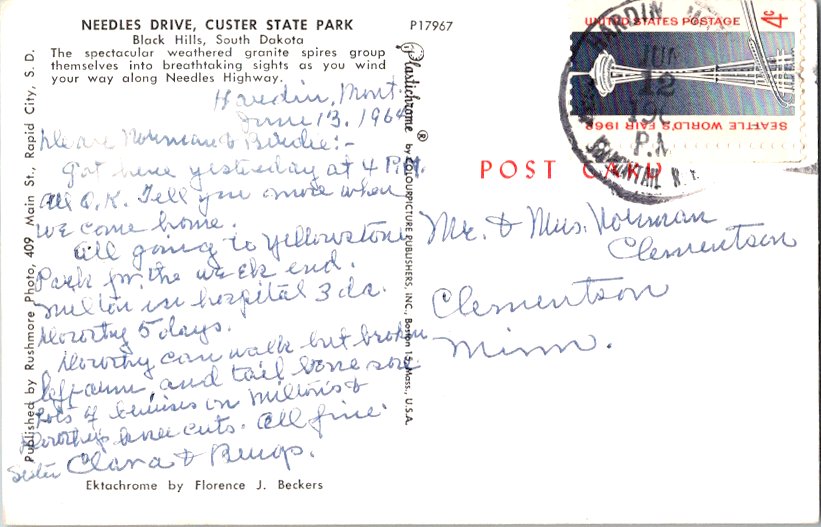 NEEDLES DRIVE, CUSTER STATE PARK
Black Hills, South Dakota
The spectacular weathered granite spires group
themselves into breathtaking sights as you wind
your way along Needles Highway.
P17967
Hardin, Mont.
June 13, 1962
Dear Norman & Birdie:-
Got here yesterday at 4 P.M.
all O.K. Tell you more when
we come home.
All going to Yellowstone
Park for the week end.
Milton in hospital 3 da.
Dorothy 5 days.
Dorothy can walk but broken
left arm, and tail bone sore
Lots of bruises on Milton's &
Dorothy's knee cuts. All fine
Sister Clara &
Ektachrome by Florence J. Beckers
Published by Rushmore Photo, 409 Main St., Rapid City, S. D.
Plastichrome ® by COLOURPICTURE PUBLISHERS, INC., Boston 15, Mass., U.S.A.
POST CARD
UNITED STATES POSTAGE
4¢
SEATTLE WORLD'S FAIR 1962
HARDIN
JUN
12
P.M
Mr. & Mrs. Norman
Clementson
Clementson
Minn.